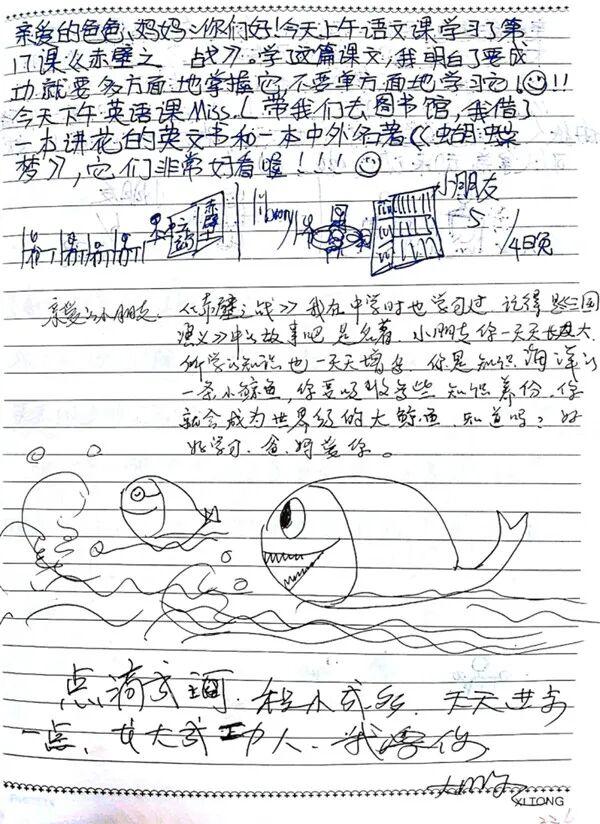 亲爱的爸爸、妈妈:你们好!今天上午语文课学习了第
17课《赤壁之 战》。学了这篇课文,我明白了要成
功就要多方面地掌握它,不要单方面地学习它!!!
今天下午英语课Miss.L带我们去图书馆,我借了
一本讲花的英文书和一本中外名著《蝴蝶
梦》,它们非常好看喔!!!!
赤壁
library
小朋友
5/4日晚
亲爱的小朋友:《赤壁之战》我在中学时也学习过,记得是《三国
演义》中的故事吧,是名著。小朋友你一天天长大,
所学的知识也一天天增多,你是知识海洋的
一条小鲸鱼,你要吸收每些知识养份,你
就会成为世界级的大鲸鱼,知道吗?好
好学习,爸、妈爱你。
点滴 积小 天天进步
一点, 大 功人 我 你
XLIONG